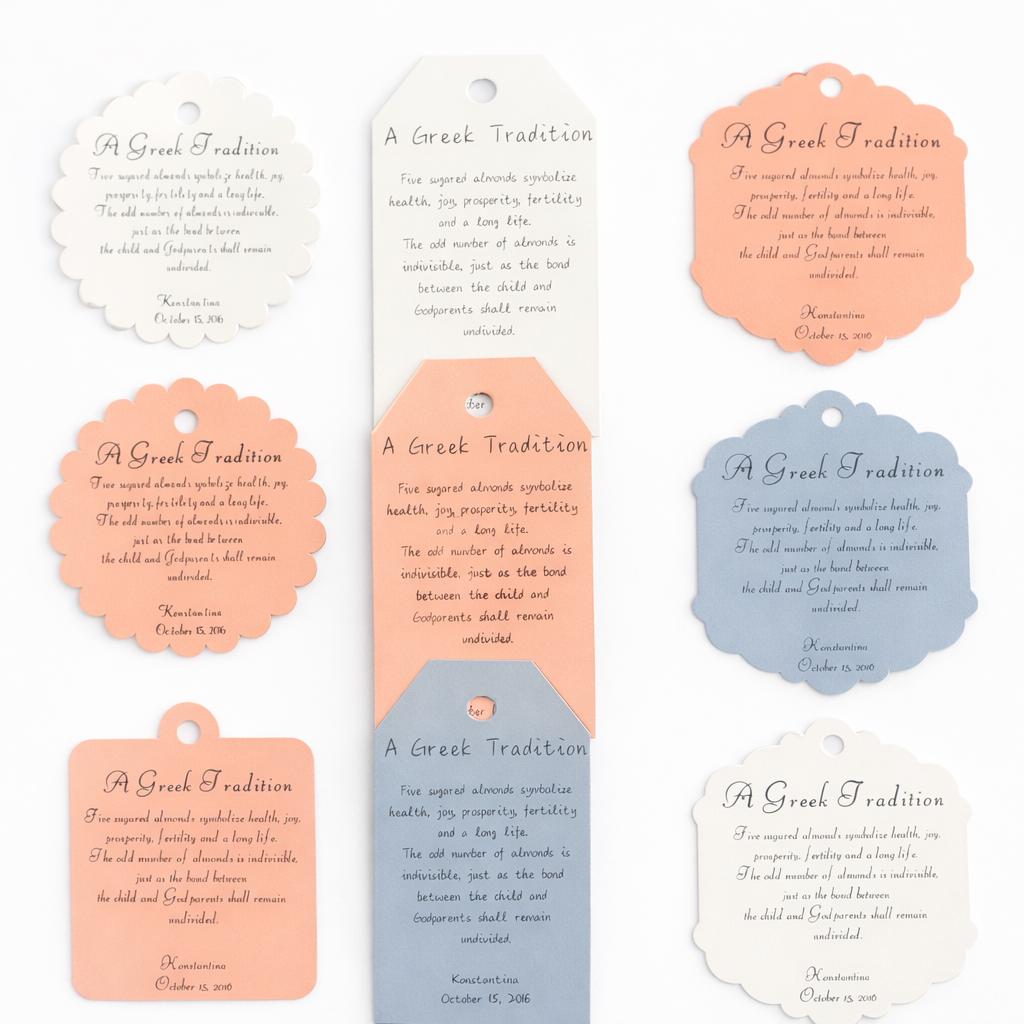 A Greek Tradition
Five sugared almonds symbolize health, joy,
prosperity, fertility and a long life.
The odd number of almonds is indivisible,
just as the bond between
the child and Godparents shall remain
undivided.
Konstantina
October 15, 2016
A Greek Tradition
Five sugared almonds symbolize health, joy,
prosperity, fertility and a long life.
The odd number of almonds is indivisible,
just as the bond between
the child and Godparents shall remain
undivided.
Konstantina
October 15, 2016
A Greek Tradition
Five sugared almonds symbolize health, joy,
prosperity, fertility and a long life.
The odd number of almonds is indivisible,
just as the bond between
the child and Godparents shall remain
undivided.
Konstantina
October 15, 2016
A Greek Tradition
Five sugared almonds symbolize
health, joy, prosperity, fertility
and a long life.
The odd number of almonds is
indivisible, just as the bond
between the child and
Godparents shall remain
undivided.
ber
A Greek Tradition
Five sugared almonds symbolize
health, joy, prosperity, fertility
and a long life.
The odd number of almonds is
indivisible, just as the bond
between the child and
Godparents shall remain
undivided.
ber
A Greek Tradition
Five sugared almonds symbolize
health, joy, prosperity, fertility
and a long life.
The odd number of almonds is
indivisible, just as the bond
between the child and
Godparents shall remain
undivided.
Konstantina
October 15, 2016
A Greek Tradition
Five sugared almonds symbolize health, joy,
prosperity, fertility and a long life.
The odd number of almonds is indivisible,
just as the bond between
the child and Godparents shall remain
undivided.
Konstantina
October 15, 2016
A Greek Tradition
Five sugared almonds symbolize health, joy,
prosperity, fertility and a long life.
The odd number of almonds is indivisible,
just as the bond between
the child and Godparents shall remain
undivided.
Konstantina
October 15, 2016
A Greek Tradition
Five sugared almonds symbolize health, joy,
prosperity, fertility and a long life.
The odd number of almonds is indivisible,
just as the bond between
the child and Godparents shall remain
undivided.
Konstantina
October 15, 2016